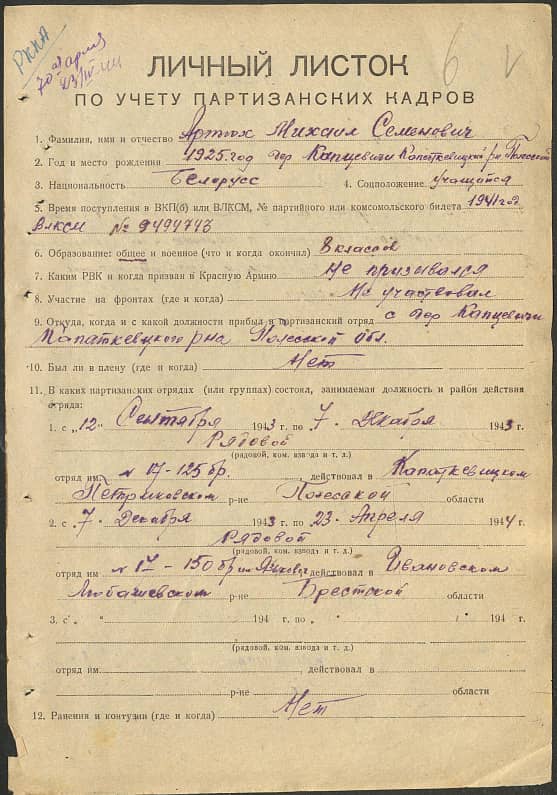 РККА
70ая армия
23/IV-44
6 V
ЛИЧНЫЙ ЛИСТОК
ПО УЧЕТУ ПАРТИЗАНСКИХ КАДРОВ
1. Фамилия, имя и отчество Артюх Михаил Семенович
2. Год и место рождения 1925 год дер Капцевичи Копаткевицкий р-н Полесской
3. Национальность Белорусс 4. Соцположение учащийся
5. Время поступления в ВКП(б) или ВЛКСМ, № партийного или комсомольского билета 1941 год
ВЛКСМ № 9494743
6. Образование: общее и военное (что и когда окончил) 8 классов
7. Каким РВК и когда призван в Красную Армию Не призывался
8. Участие на фронтах (где и когда) Не участвовал
9. Откуда, когда и с какой должности прибыл в партизанский отряд с дер Капцевичи
Капаткевицкого р-на Полесской обл.
10. Был ли в плену (где и когда) Нет
11. В каких партизанских отрядах (или группах) состоял, занимаемая должность и район действия
отряда:
1. с „12" Сентября 1943 г. по 7 Декабря 1943 г.
Рядовой
(рядовой, ком. взвода и т. д.)
отряд им. № 17-125 бр. действовал в Капаткевицком
Петриковском р-не Полесской области
2. с 7 Декабря 1943 г. по 23 Апреля 1944 г.
Рядовой
(рядовой, ком. взвода и т. д.)
отряд им № 17 - 150 бр действовал в Ивановском
Любашевском р-не Брестской области
3. с „ " 194 г. по „ " 194 г.
(рядовой, ком. взвода и т. д.)
отряд им. действовал в
р-не области
12. Ранения и контузии (где и когда) Нет